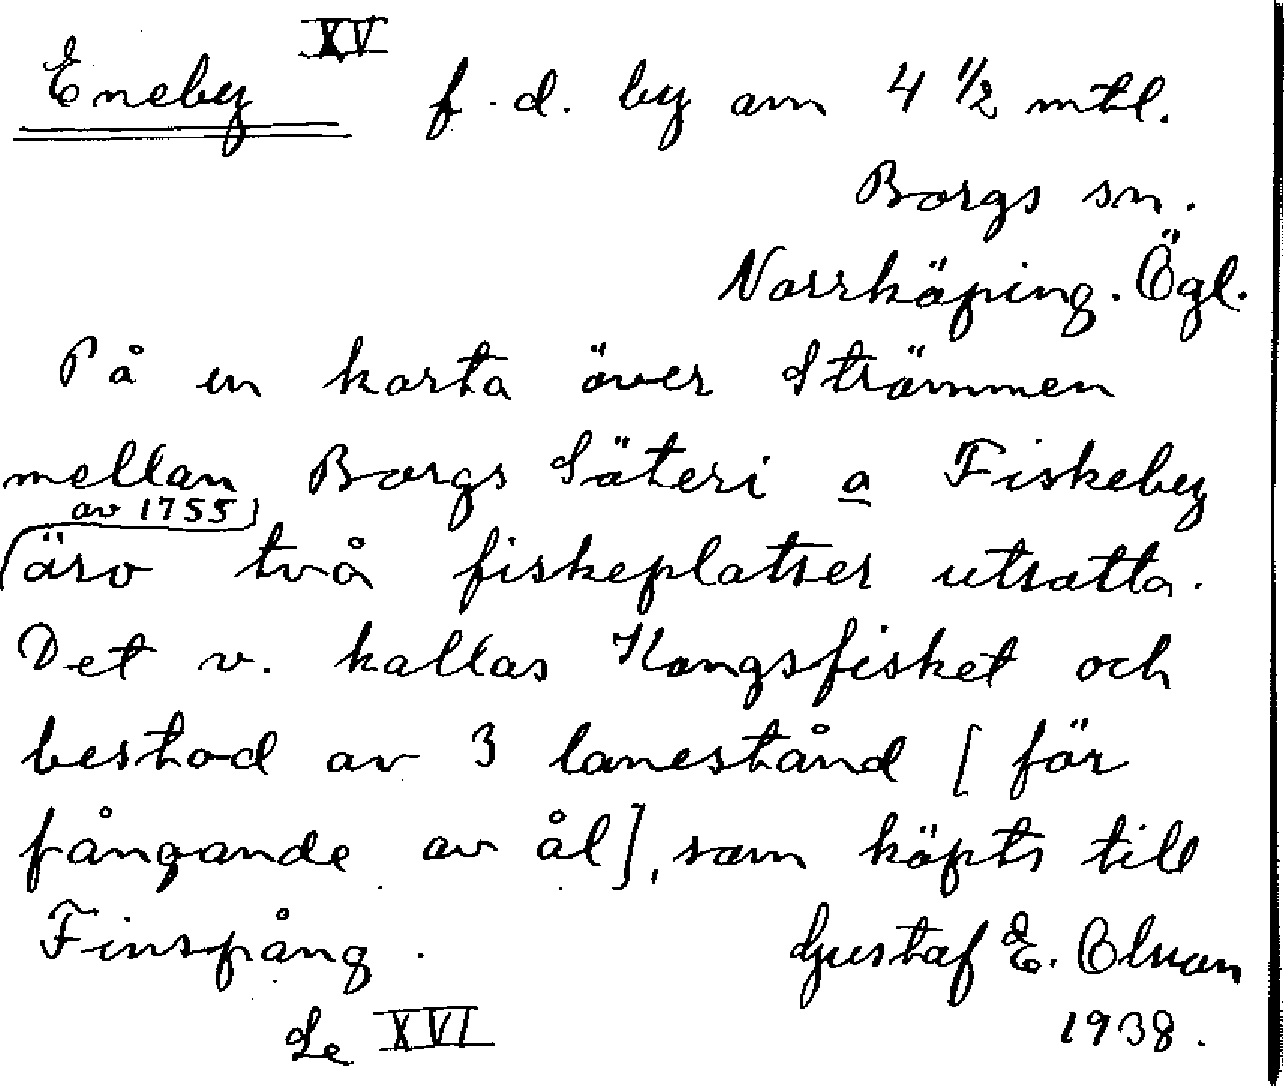 Eneby XV f.d. by om 4 1/2 mtl.
Borgs sn.
Norrköping. Ögl.
På en karta över Strömmen
mellan Borgs Säteri o Fiskeby
av 1755
äro två fiskeplatser utsatta.
Det v. kallas Kongsfisket och
bestod av 3 lanestånd [för
fångande av ål], som köpts till
Finspång.
Gustaf E. Olson
Se XVI
1938.